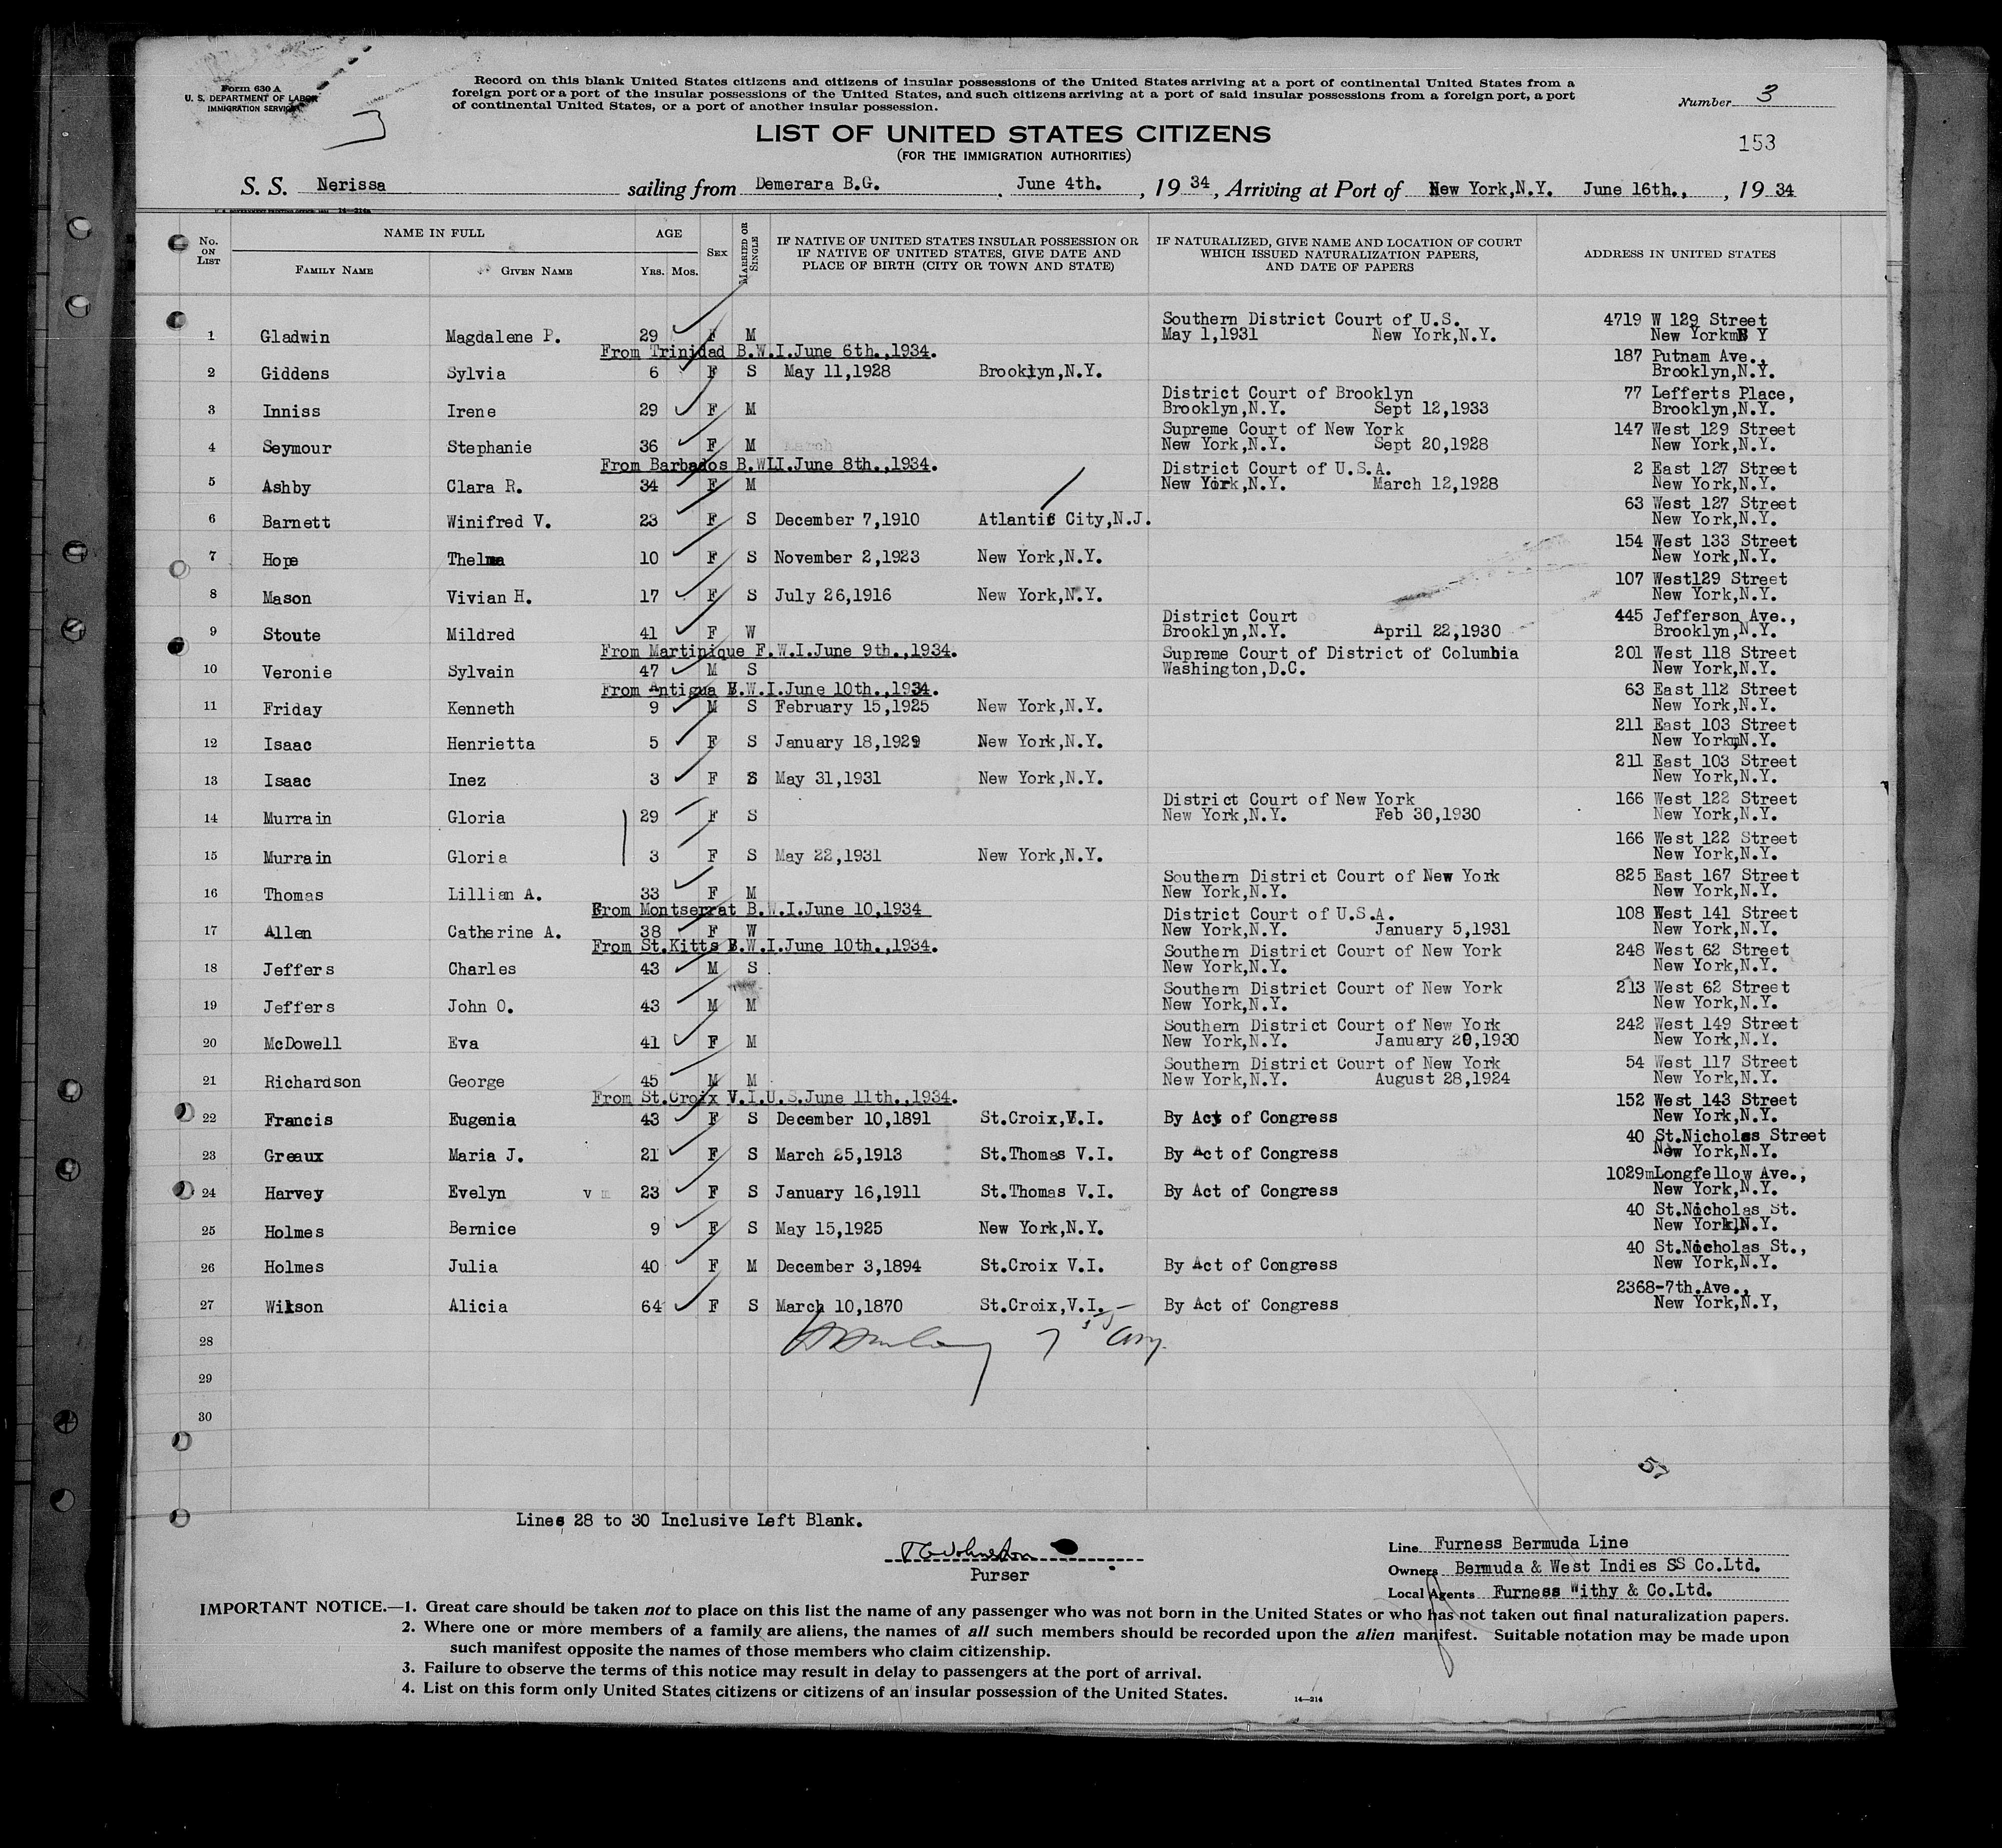 Form 630 A
U. S. DEPARTMENT OF LABOR
IMMIGRATION SERVICE
Record on this blank United States citizens and citizens of insular possessions of the United States arriving at a port of continental United States from a
foreign port or a port of the insular possessions of the United States, and such citizens arriving at a port of said insular possessions from a foreign port, a port
of continental United States, or a port of another insular possession.
Number 3
LIST OF UNITED STATES CITIZENS
(FOR THE IMMIGRATION AUTHORITIES)
153
S. S. Nerissa sailing from Demerara B.G. , June 4th. , 19 34, Arriving at Port of New York,N.Y. June 16th., , 19 34
No. ON LIST NAME IN FULL FAMILY NAME GIVEN NAME AGE YRS. MOS. SEX MARRIED OR SINGLE IF NATIVE OF UNITED STATES INSULAR POSSESSION OR IF NATIVE OF UNITED STATES, GIVE DATE AND PLACE OF BIRTH (CITY OR TOWN AND STATE) IF NATURALIZED, GIVE NAME AND LOCATION OF COURT WHICH ISSUED NATURALIZATION PAPERS, AND DATE OF PAPERS ADDRESS IN UNITED STATES
Southern District Court of U.S. 4719 W 129 Street
1 Gladwin Magdalene P. 29 F M May 1,1931 New York,N.Y. New YorkmN Y
From Trinidad B.W.I.June 6th.,1934. 187 Putnam Ave.,
2 Giddens Sylvia 6 F S May 11,1928 Brooklyn,N.Y. Brooklyn,N.Y.
District Court of Brooklyn 77 Lefferts Place,
3 Inniss Irene 29 F M Brooklyn,N.Y. Sept 12,1933 Brooklyn,N.Y.
Supreme Court of New York 147 West 129 Street
4 Seymour Stephanie 36 F M New York,N.Y. Sept 20,1928 New York,N.Y.
From Barbados B.WLI.June 8th.,1934. District Court of U.S.A. 2 East 127 Street
5 Ashby Clara R. 34 F M New York,N.Y. March 12,1928 New York,N.Y.
63 West 127 Street
6 Barnett Winifred V. 23 F S December 7,1910 Atlantic City,N.J. New York,N.Y.
154 West 133 Street
7 Hope Thelma 10 F S November 2,1923 New York,N.Y. New York,N.Y.
107 West129 Street
8 Mason Vivian H. 17 F S July 26,1916 New York,N.Y. New York,N.Y.
District Court 445 Jefferson Ave.,
9 Stoute Mildred 41 F W Brooklyn,N.Y. April 22,1930 Brooklyn,N.Y.
From Martinique F.W.I.June 9th.,1934. Supreme Court of District of Columbia 201 West 118 Street
10 Veronie Sylvain 47 M S Washington,D.C. New York,N.Y.
From Antigua B.W.I.June 10th.,1934. 63 East 112 Street
11 Friday Kenneth 9 M S February 15,1925 New York,N.Y. New York,N.Y.
211 East 103 Street
12 Isaac Henrietta 5 F S January 18,1929 New York,N.Y. New YorkmN.Y.
211 East 103 Street
13 Isaac Inez 3 F S May 31,1931 New York,N.Y. New York,N.Y.
District Court of New York 166 West 122 Street
14 Murrain Gloria 29 F S New York,N.Y. Feb 30,1930 New York,N.Y.
166 West 122 Street
15 Murrain Gloria 3 F S May 22,1931 New York,N.Y. New York,N.Y.
Southern District Court of New York 825 East 167 Street
16 Thomas Lillian A. 33 F M New York,N.Y. New York,N.Y.
From Montserrat B.W.I.June 10,1934 District Court of U.S.A. 108 West 141 Street
17 Allen Catherine A. 38 F W New York,N.Y. January 5,1931 New York,N.Y.
From St.Kitts B.W.I.June 10th.,1934. Southern District Court of New York 248 West 62 Street
18 Jeffers Charles 43 M S New York,N.Y. New York,N.Y.
Southern District Court of New York 213 West 62 Street
19 Jeffers John O. 43 M M New York,N.Y. New York,N.Y.
Southern District Court of New York 242 West 149 Street
20 McDowell Eva 41 F M New York,N.Y. January 20,1930 New York,N.Y.
Southern District Court of New York 54 West 117 Street
21 Richardson George 45 M M New York,N.Y. August 28,1924 New York,N.Y.
From St.Croix V.I.U.S.June 11th.,1934. 152 West 143 Street
22 Francis Eugenia 43 F S December 10,1891 St.Croix,V.I. By Act of Congress New York,N.Y.
40 St.Nicholas Street
23 Greaux Maria J. 21 F S March 25,1913 St.Thomas V.I. By Act of Congress New York,N.Y.
1029mLongfellow Ave.,
24 Harvey Evelyn v m 23 F S January 16,1911 St.Thomas V.I. By Act of Congress New York,N.Y.
40 St.Nicholas St.
25 Holmes Bernice 9 F S May 15,1925 New York,N.Y. New York,N.Y.
40 St.Nicholas St.,
26 Holmes Julia 40 F M December 3,1894 St.Croix V.I. By Act of Congress New York,N.Y.
2368-7th.Ave.,
27 Wilson Alicia 64 F S March 10,1870 St.Croix,V.I. By Act of Congress New York,N.Y,
28
29
30
57
Lines 28 to 30 Inclusive Left Blank.
Johnston
Purser
Line Furness Bermuda Line
Owners Bermuda & West Indies SS Co.Ltd.
Local Agents Furness Withy & Co.Ltd.
IMPORTANT NOTICE.—1. Great care should be taken not to place on this list the name of any passenger who was not born in the United States or who has not taken out final naturalization papers.
2. Where one or more members of a family are aliens, the names of all such members should be recorded upon the alien manifest. Suitable notation may be made upon
such manifest opposite the names of those members who claim citizenship.
3. Failure to observe the terms of this notice may result in delay to passengers at the port of arrival.
4. List on this form only United States citizens or citizens of an insular possession of the United States.
14—214